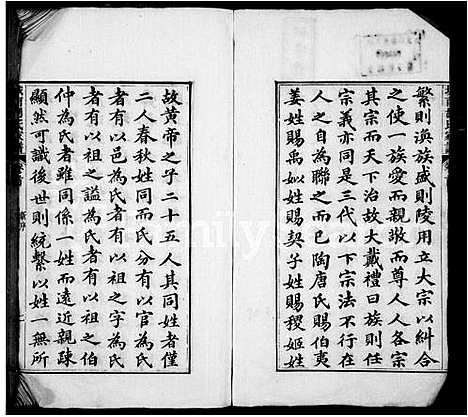 繁則渙族盛則陵用立大宗以糾合
之使一族愛而親敬而尊人人各宗
其宗而天下治故大戴禮曰族則任
宗義亦同是三代以下宗法不行在
人人自為聯之而已陶唐氏賜伯夷
姜姓賜禹姒姓賜契子姓賜稷姬姓
故黃帝之子二十五人其同姓者僅
二人春秋姓同而氏分有以官為氏
者有以邑為氏者有以祖之字為氏
者有以祖之謚為氏者有以祖之伯
仲為氏者雖同係一姓而遠近親疎
顯然可識後世則統繫以姓一無所